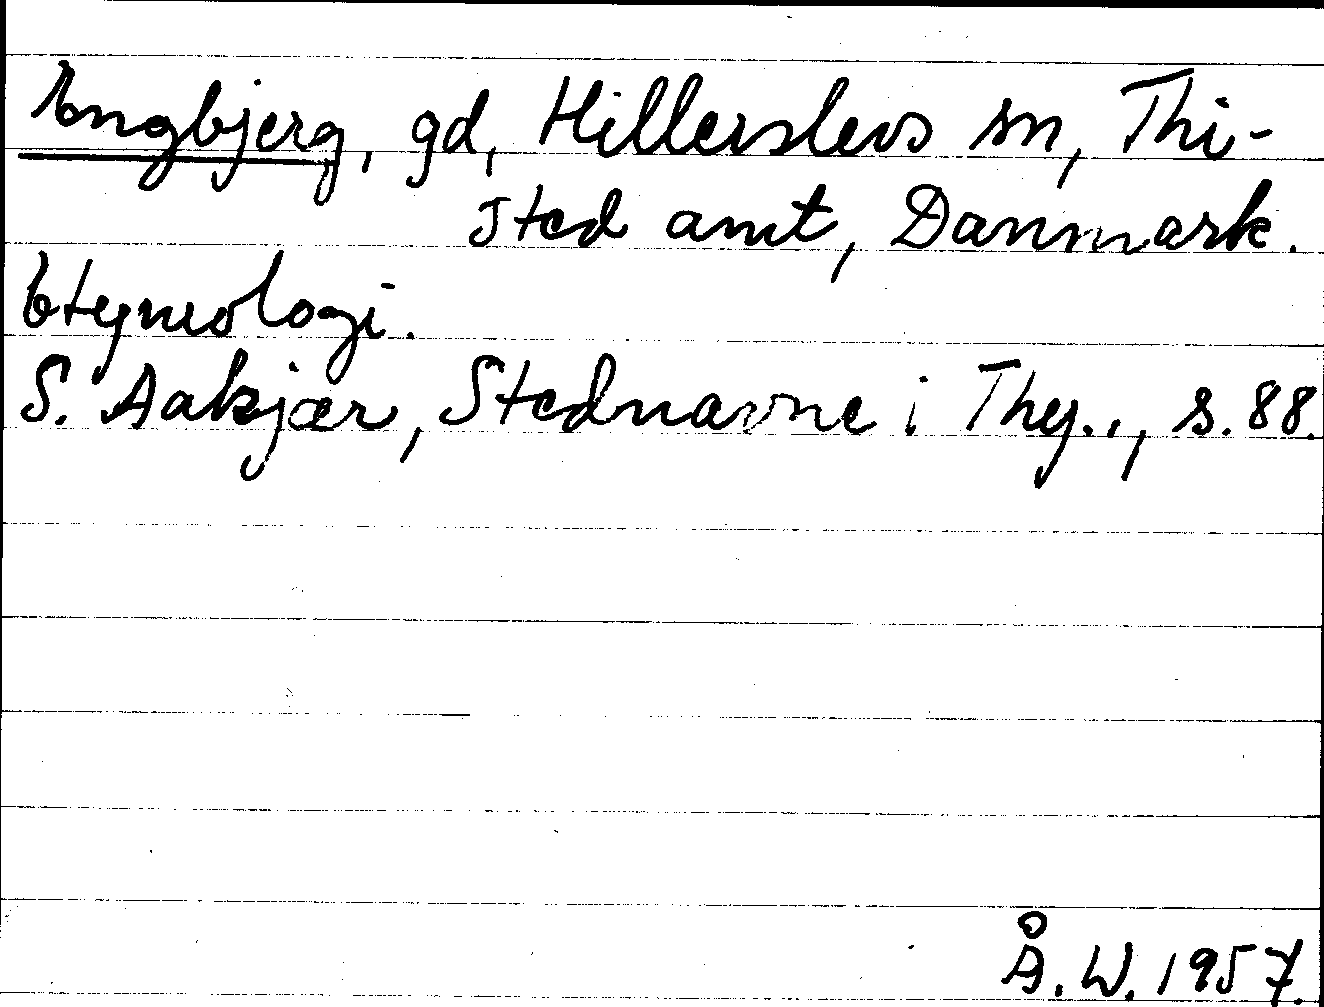 Engbjerg, gd, Hillerslevs sn, Thi-
sted amt, Danmark.
Etymologi.
S. Aakjær, Stednavne i Thy.., s. 88.
Å. W. 1957.